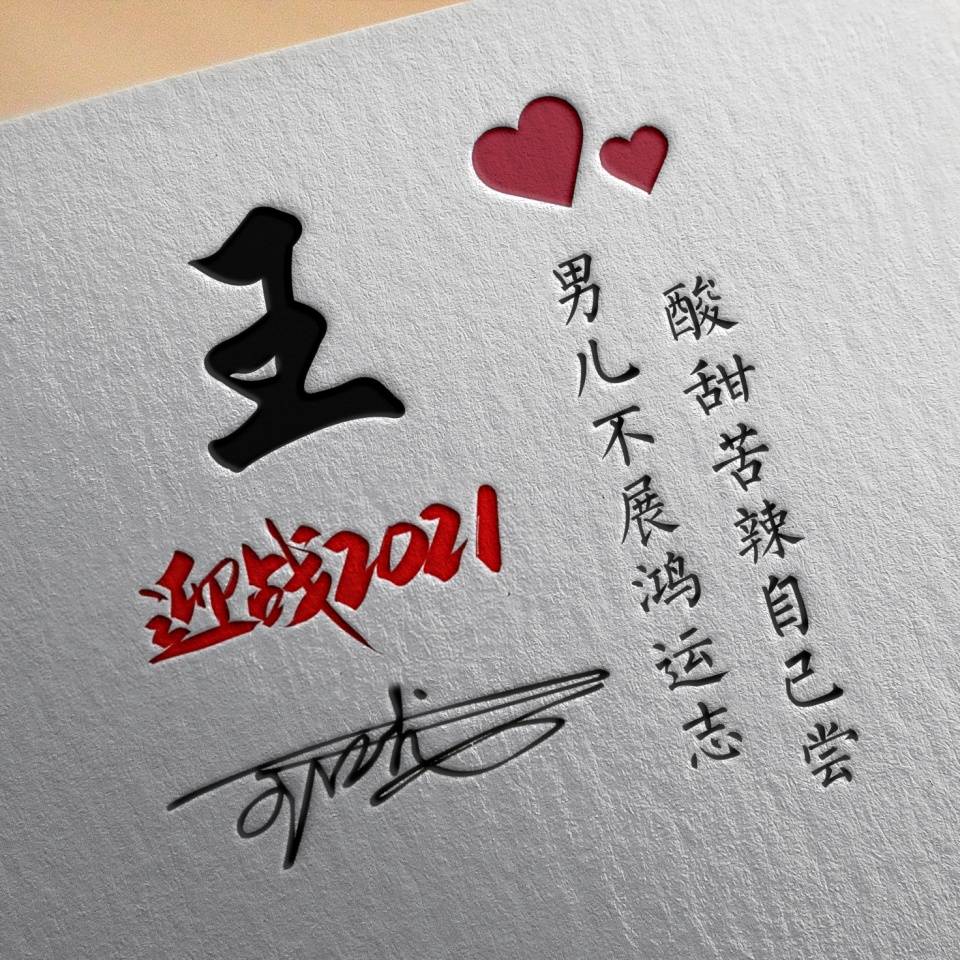 王
迎战2021
男儿不展鸿运志
酸甜苦辣自己尝